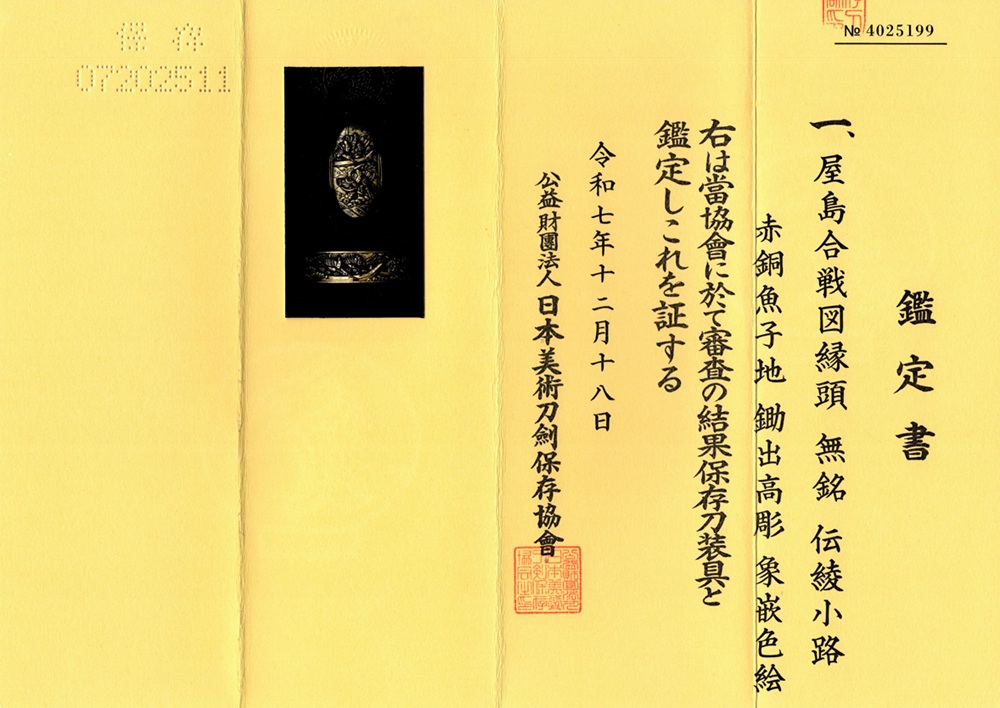 № 4025199
鑑定書
一、屋島合戦図縁頭 無銘 伝綾小路
赤銅魚子地 鋤出高彫 象嵌色絵
右は當協會に於て審査の結果保存刀装具と
鑑定しこれを証する
令和七年十二月十八日
公益財團法人 日本美術刀劍保存協會
保存
07202511